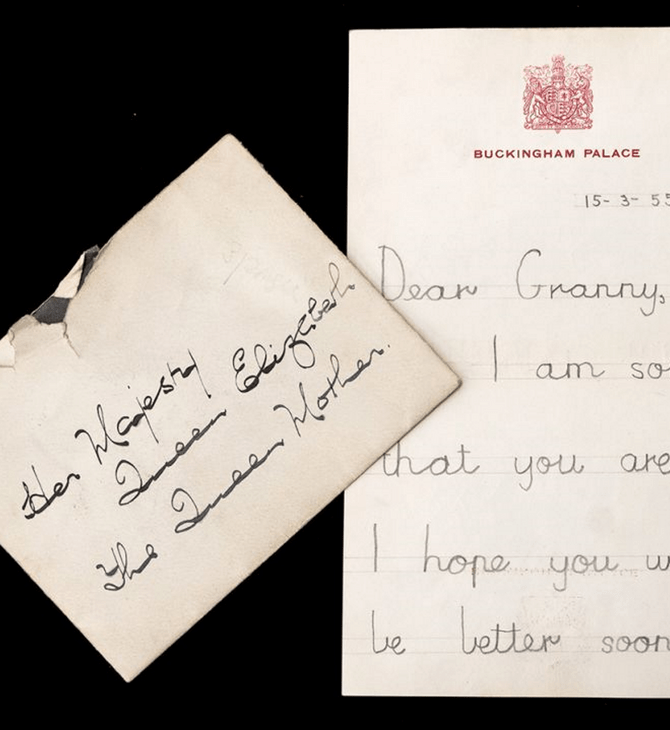 Her Majesty
Queen Elizabeth
The Queen Mother.
BUCKINGHAM PALACE
15-3-55
Dear Granny,
I am so
that you are
I hope you w
be better soon